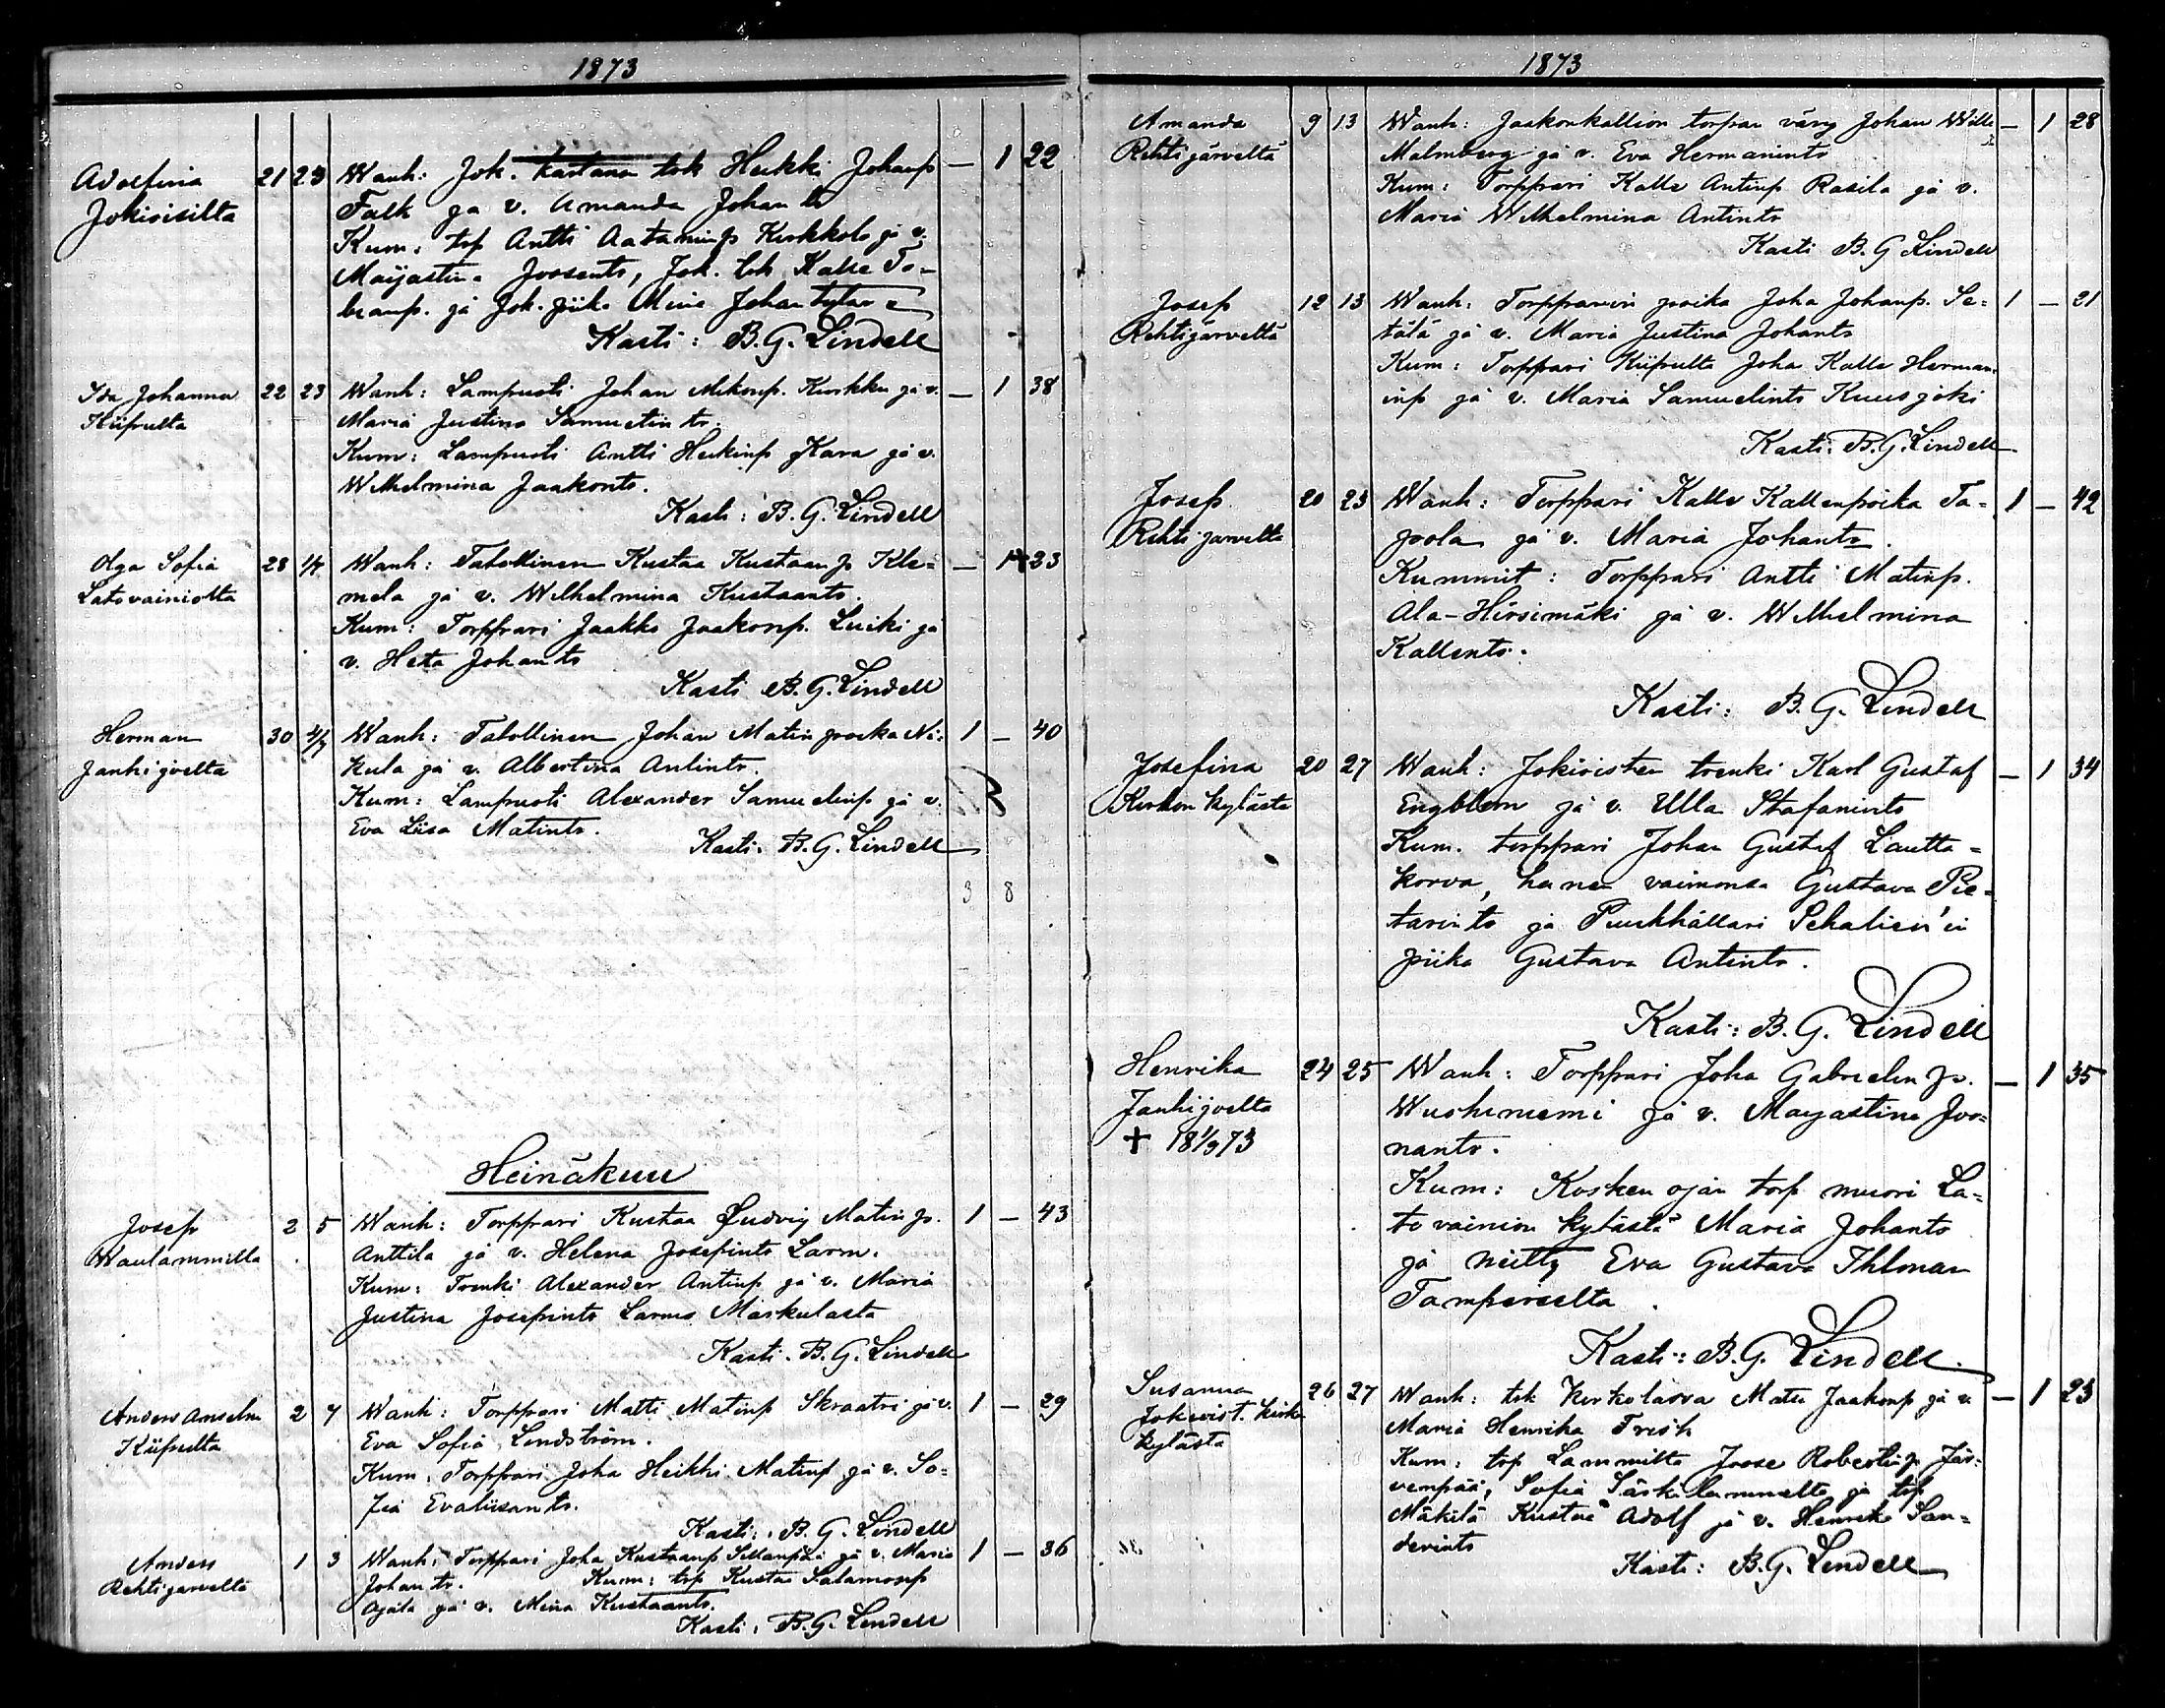 1873
Adolfina 21 23 Wanh: Jok. kartanon trk Heikki Johanp — 1 22
Jokioisilta Falk ja v. Amanda Johantr
Kum: trp Antti Aataminp Kirkkola ja v.
Maijastina Joosentr, Jok. trk Kalle To-
beanp. ja Jok. piika Mina Johan tytär
Kasti: B.G. Lindell
Ida Johanna 22 23 Wanh: Lampuoti Johan Mikonp. Kurkku ja v. — 1 38
Kiipulta Maria Justina Samuelintr.
Kum: Lampuoti Antti Heikinp Kara ja v.
Wilhelmina Jaakontr.
Kasti: B.G. Lindell
Olga Sofia 28 1/7 Wanh: Talollinen Kustaa Kustaanp Kle= — 1 23
Latovainiolta mela ja v. Wilhelmina Kustaantr.
Kum: Torppari Jaakko Jaakonp. Luiki ja
v. Heta Johantr
Kasti B.G. Lindell
Herman 30 4/7 Wanh: Talollinen Johan Matin poika Ni= 1 — 40
Janhijoelta kula ja v. Albertina Antintr.
Kum: Lampuoti Alexander Samuelinp ja v.
Eva Liisa Matintr.
Kasti. B.G. Lindell
3 8
Heinäkuu
Josep 2 5 Wanh: Torppari Kustaa Ludvig Matinp. 1 — 43
Waulammilla Anttila ja v. Helena Josefintr Larm.
Kum: Trenki Alexander Antinp ja v. Maria
Justina Josefintr Larms Märkulasta
Kasti. B.G. Lindell
Anders Anselm 2 7 Wanh: Torppari Matti Matinp Skraatri ja v. 1 — 29
Kiipulta Eva Sofia Lindström.
Kum. Torppari Joha Heikki Matinp ja v. So=
fia Evaliisantr.
Kasti: B.G. Lindell
Anders 1 3 Wanh: Torppari Joha Kustaanp Sillanpää ja v. Maria 1 — 36
Rehtijärveltä Johantr. Kum: trp Kustaa Salamonp
Ojala ja v. Mina Kustaantr.
Kasti. B.G. Lindell
1873
Amanda 9 13 Wanh: Jaakonkallion torpan vävy Johan Wille — 1 28
Rehtijärveltä Malmberg ja v. Eva Hermanintr
Kum: Torppari Kalle Antinp Rasila ja v.
Maria Wilhelmina Antintr
Kasti B.G Lindell
Josep 12 13 Wanh: Torpparin poika Joha Johanp. Se= 1 — 21
Rehtijärveltä tälä ja v. Maria Justina Johantr
Kum: Torppari Kiipulta Joha Kalle Herman
inp ja v. Maria Samuelintr Kuusjoki
Kasti: B.G. Lindell
Josep 20 23 Wanh: Torppari Kalle Kallenpoika Ta= 1 — 42
Rehtijärveltä pola ja v. Maria Johantr.
Kummit: Torppari Antti Matinp.
Ala-Hirsimäki ja v. Wilhelmina
Kallentr.
Kasti: B.G. Lindell
Josefina 20 27 Wanh: Jokioisten trenki Karl Gustaf — 1 34
Kirkon kylästä Engblom ja v. Ulla Stafanintr
Kum. torppari Johan Gustaf Lautta=
korva, hänen vaimonsa Gustava Pie=
tarintr ja Puukhållari Schalien'in
piika Gustava Antintr.
Kasti: B.G. Lindell
Henrika 24 25 Wanh: Torppari Joha Gabrielin p. — 1 35
Janhijoelta Wuohiniemi ja v. Maijastina Joo=
✝ 18 1/9 73 nantr.
Kum: Kosken ojan torp muori La=
tovainion kylästä Maria Johantr
ja neitty Eva Gustava Ihlman
Tampereelta.
Kasti: B.G. Lindell.
Susanna 26 27 Wanh: trk Kirkolassa Matti Jaakonp ja v. — 1 23
Jokioist. kirk Maria Henrika Frisk
kylästä Kum: trp Lammilta Joose Robertinp Jär=
venpää, Sofia Särkilammilta ja trp
Mäkilä Kustaa Adolf ja v. Henrika San=
derintr
Kasti: B.G. Lindell